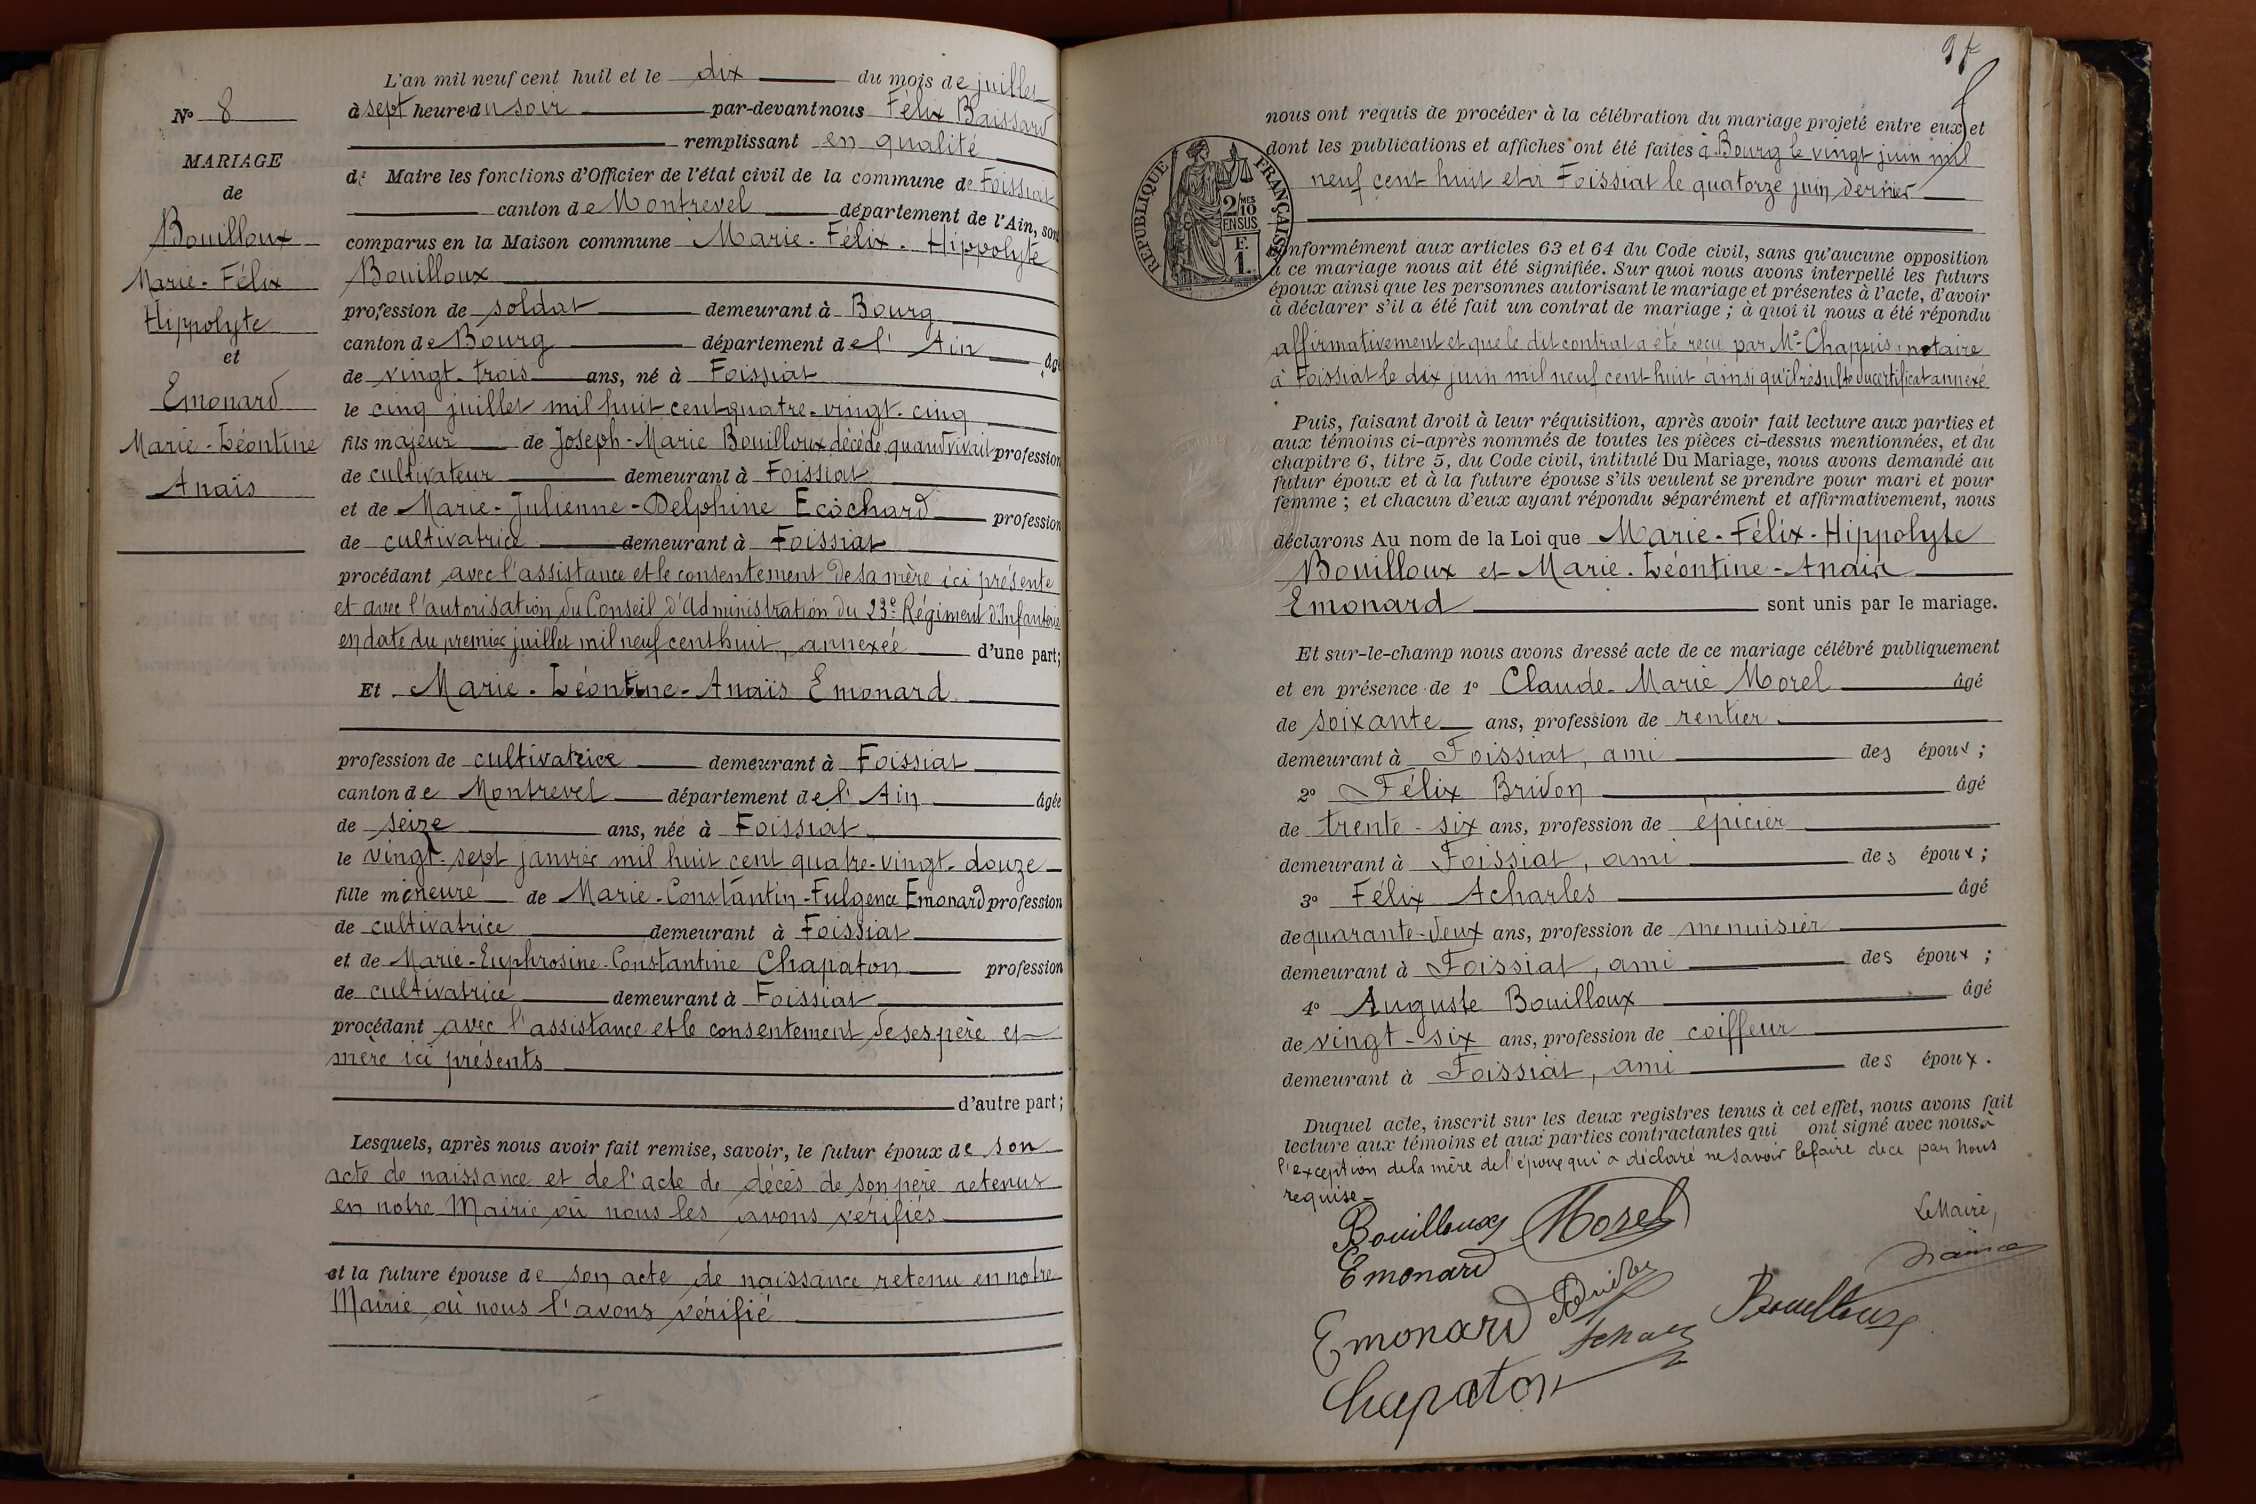 L'an mil neuf cent huit et le dix du mois de juillet
à sept heures du soir par-devant nous Félix Baissard
remplissant en qualité
de Maire les fonctions d'Officier de l'état civil de la commune de Foissiat
canton de Montrevel département de l'Ain, sont
comparus en la Maison commune Marie-Félix-Hippolyte
Bouilloux
profession de soldat demeurant à Bourg
canton de Bourg département de l'Ain âgé
de vingt-trois ans, né à Foissiat
le cinq juillet mil huit cent quatre-vingt-cinq
fils majeur de Joseph-Marie Bouilloux décédé, quand vivait profession
de cultivateur demeurant à Foissiat
et de Marie-Julienne-Delphine Ecochard profession
de cultivatrice demeurant à Foissiat
procédant avec l'assistance et le consentement de sa mère ici présente
et avec l'autorisation du Conseil d'Administration du 23e Régiment d'Infanterie
en date du premier juillet mil neuf cent huit, annexée d'une part;
Et Marie-Léontine-Anaïs Emonard
profession de cultivatrice demeurant à Foissiat
canton de Montrevel département de l'Ain âgée
de seize ans, née à Foissiat
le vingt-sept janvier mil huit cent quatre-vingt-douze
fille mineure de Marie-Constantin-Fulgence Emonard profession
de cultivatrice demeurant à Foissiat
et de Marie-Euphrosine-Constantine Chapaton profession
de cultivatrice demeurant à Foissiat
procédant avec l'assistance et le consentement de ses père et
mère ici présents
d'autre part;
Lesquels, après nous avoir fait remise, savoir, le futur époux de son
acte de naissance et de l'acte de décès de son père retenus
en notre Mairie où nous les avons vérifiés
et la future épouse de son acte de naissance retenu en notre
Mairie où nous l'avons vérifié
No 8
MARIAGE
de
Bouilloux
Marie-Félix
Hippolyte
et
Emonard
Marie-Léontine
Anaïs
nous ont requis de procéder à la célébration du mariage projeté entre eux et
dont les publications et affiches ont été faites à Bourg le vingt juin mil
neuf cent huit et à Foissiat le quatorze juin dernier
RÉPUBLIQUE FRANÇAISE
2 MES
10
EN SUS
F.
1.
conformément aux articles 63 et 64 du Code civil, sans qu'aucune opposition
à ce mariage nous ait été signifiée. Sur quoi nous avons interpellé les futurs
époux ainsi que les personnes autorisant le mariage et présentes à l'acte, d'avoir
à déclarer s'il a été fait un contrat de mariage; à quoi il nous a été répondu
affirmativement et que le dit contrat a été reçu par Me Chapuis, notaire
à Foissiat le dix juin mil neuf cent huit ainsi qu'il résulte du certificat annexé
Puis, faisant droit à leur réquisition, après avoir fait lecture aux parties et
aux témoins ci-après nommés de toutes les pièces ci-dessus mentionnées, et du
chapitre 6, titre 5, du Code civil, intitulé Du Mariage, nous avons demandé au
futur époux et à la future épouse s'ils veulent se prendre pour mari et pour
femme; et chacun d'eux ayant répondu séparément et affirmativement, nous
déclarons Au nom de la Loi que Marie-Félix-Hippolyte
Bouilloux et Marie-Léontine-Anaïs
Emonard sont unis par le mariage.
Et sur-le-champ nous avons dressé acte de ce mariage célébré publiquement
et en présence de 1o Claude-Marie Morel âgé
de soixante ans, profession de rentier
demeurant à Foissiat, ami des époux;
2o Félix Bridon âgé
de trente-six ans, profession de épicier
demeurant à Foissiat, ami des époux;
3o Félix Acharles âgé
de quarante-deux ans, profession de menuisier
demeurant à Foissiat, ami des époux;
4o Auguste Bouilloux âgé
de vingt-six ans, profession de coiffeur
demeurant à Foissiat, ami des époux.
Duquel acte, inscrit sur les deux registres tenus à cet effet, nous avons fait
lecture aux témoins et aux parties contractantes qui ont signé avec nous à
l'exception de la mère de l'époux qui a déclaré ne savoir le faire de ce par nous
requise
Bouilloux Morel
Le Maire,
Emonard
Emonard
Bouilloux
Chapaton